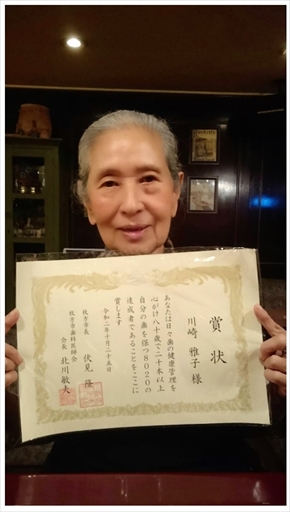 賞状
川崎 雅子 様
あなたは日々歯の健康管理を
心がけ八十歳で二十本以上
自分の歯を保つ8020の
達成者であることをここに
賞します
令和二年十月二十五日
枚方市長 伏見 隆
枚方市歯科医師会
会長 北川敏夫